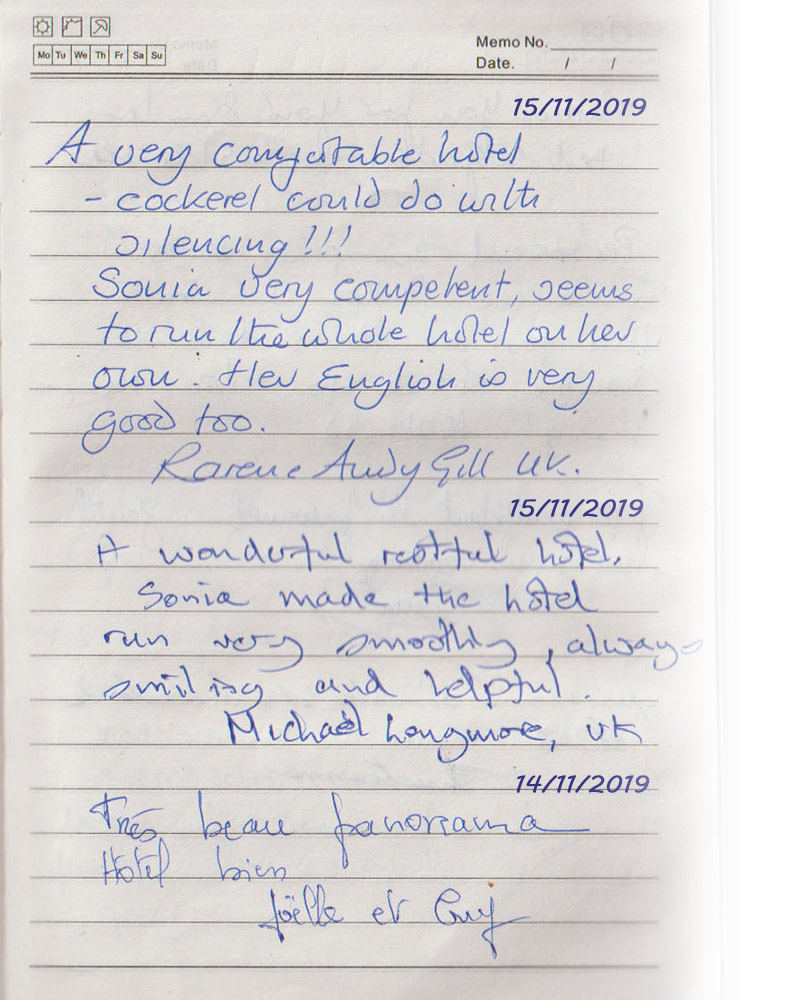 Mo Tu We Th Fr Sa Su
Memo No.
Date. / /
15/11/2019
A very comfortable hotel
- cockerel could do with
silencing!!!
Sonia very competent, seems
to run the whole hotel on her
own. Her English is very
good too.
Andy Gill UK.
15/11/2019
A wonderful restful hotel.
Sonia made the hotel
run very smoothly, always
smiling and helpful.
Michael Longmore, UK
14/11/2019
Très beau panorama
Hotel bien
Joëlle et Guy